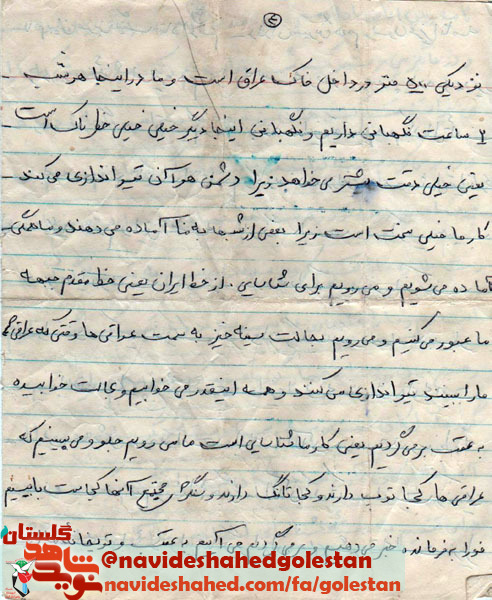 ۲
نزدیکی ۵۰۰ متر در داخل خاک عراق است و ما در اینجا هر شب
۲ ساعت نگهبانی داریم و نگهبانی اینجا دیگر خیلی خیلی خطرناک است
یعنی خیلی دقت بیشتر می خواهد زیرا دشمن هر آن تیر اندازی می کند
کار ما خیلی سخت است زیرا بعضی از شبها به ما آماده می دهند و ما همگی
آماده می شویم و می رویم برای شناسایی . از خط ایران یعنی خط مقدم جبهه
ما عبور می کنیم و می رویم بحالت سینه خیز به سمت عراقی ها وقتی که عراقی ها
ما را ببینند تیر اندازی می کنند و همه اینقدر می خوابیم و حالت خوابیده
به عقب بر می گردیم یعنی کار ما شناسایی است ما می رویم جلو و می بینیم که
عراقی ها کجا توپ دارند و کجا تانک دارند و سنگر آنها کجاست بایستیم
فورا به فرمانده خبر می دهیم و بر می گردیم می آییم به عقب و
نوید شاهد گلستان
@navideshahedgolestan
navideshahed.com/fa/golestan